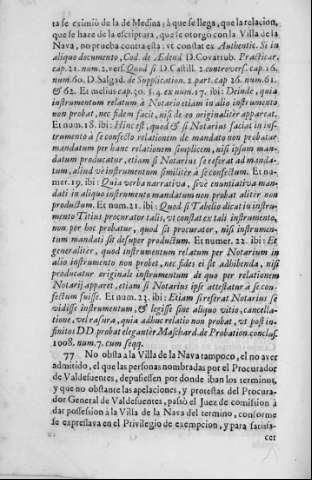 ta se eximiò de la de Medina; à que se llega, que la relacion,
que se haze de la escriptura, que se otorgò con la Villa de la
Nava, no prueba contra esta: vt constat ex Authentic. Si in
aliquo documento, Cod. de Ædend D. Covarrub. Practicar.
cap. 21. num. 2. vers. Quod si D. Castill. 2. controvers. cap. 16.
num. 60. D. Salgad. de Supplication. 2. part. cap. 26. num. 61.
& 62. Et melius cap. 30. §. 4. ex num. 17. ibi: Deinde, quia
instrumentum relatum à Notario etiam in alio instrumento
non probat, nec fidem facit, nisi de eo originaliter appareat.
Et num. 18. ibi: Hinc est, quod & si Notarius faciat in ins-
trumento à se confecto relationem de mandato non probatur
mandatum per hanc relationem simplicem, nisi ipsum man-
datum producatur, etiam si Notarius se referat ad manda-
tum, aliud vè instrumentum similitèr à se confectum. Et nu-
mer. 19. ibi: Quia verba narrativa, sivè enuntiativa man-
dati in aliquo instrumento mandatum non probat alitèr non
productum. Et num. 21. ibi: Quod si Tabelio dicat in instru-
mento Titius procurator talis, vt constat ex tali instrumento,
non per hoc probatur, quod sit procurator, nisi instrumen-
tum mandati sit desuper productum. Et numer. 22. ibi: Et
generalitèr, quod instrumentum relatum per Notarium in
alio instrumento non probat, nec fides ei sit adhibenda, nisi
producatur originale instrumentum de quo per relationem
Notarij apparet, etiam si Notarius ipse attestatur à se con-
fectum fuisse. Et num. 23. ibi: Etiam si referat Notarius se
vidisse instrumentum, & legisse sine aliquo vitio, cancella-
tione, vel rasura, quia adhuc relatio non probat, vt post in-
finitos DD. probat elegantèr Maschard. de Probation. concluss.
1008. num. 7. cum seqq.
77 No obsta à la Villa de la Nava tampoco, el no aver
admitido, el que las personas nombradas por el Procurador
de Valdefuentes, depusiessen por donde iban los terminos,
y que no obstante las apelaciones, y protestas del Procura-
dor General de Valdefuentes, passò el Juez de comission à
dar possession à la Villa de la Nava del termino, conforme
se expressava en el Privilegio de exempcion, y para satisfa-
cer